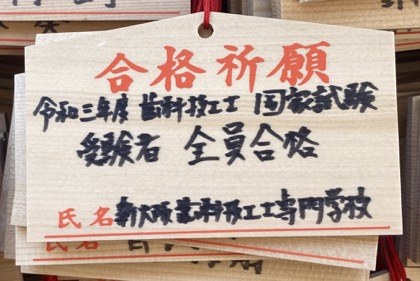 合格祈願
令和三年度 歯科技工士 国家試験
受験者 全員合格
氏名 新大阪歯科技工士専門学校
氏名